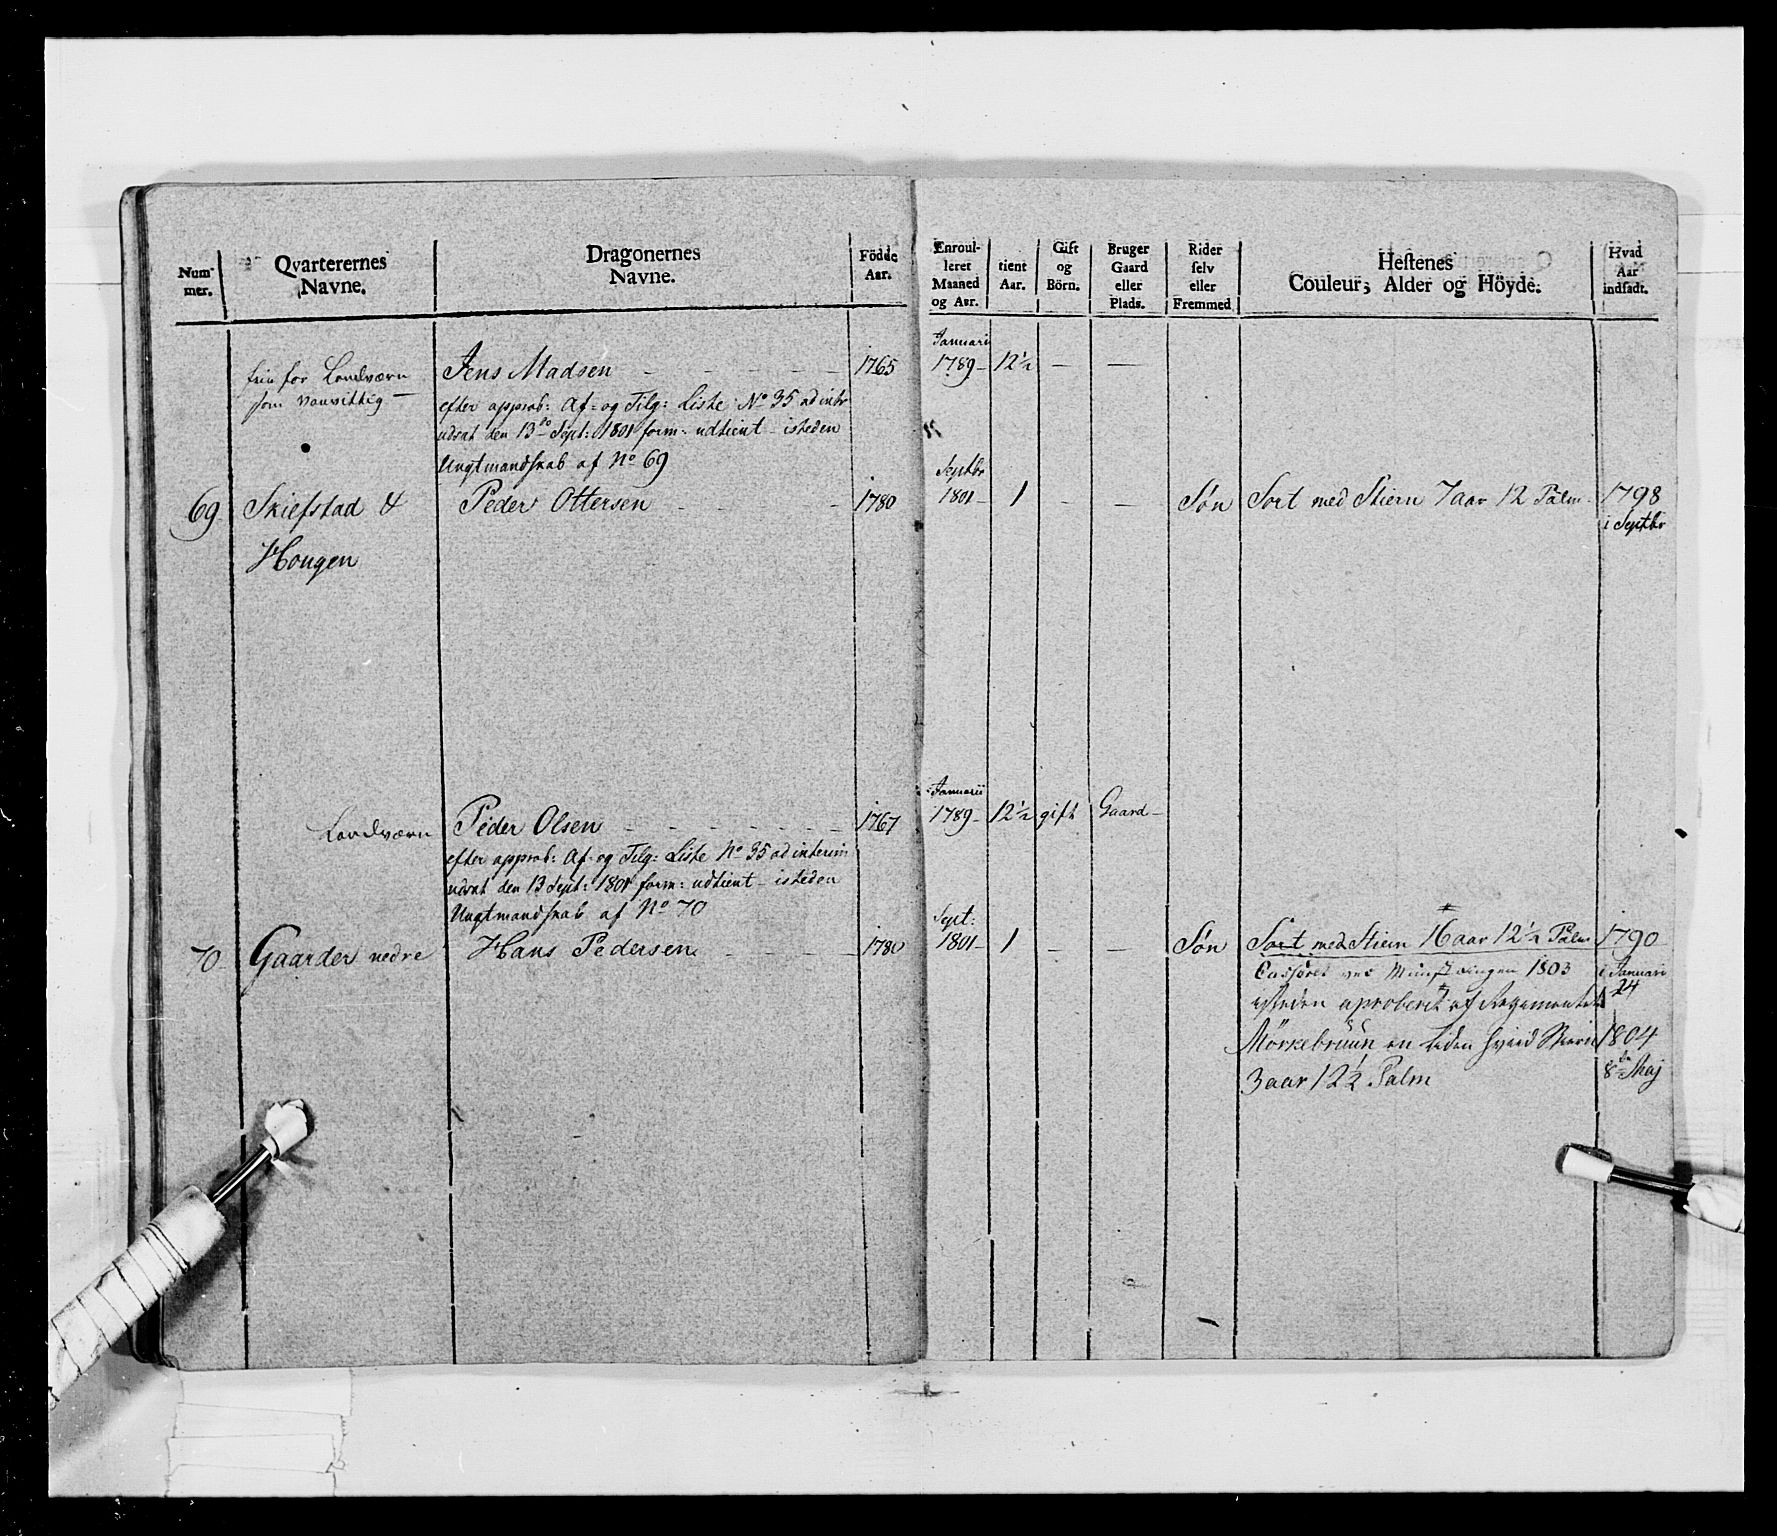 Num-
mer.
Qvarterernes
Navne.
Dragonernes
Navne.
Födde
Aar.
Enroul-
leret
Maaned
og Aar.
tient
Aar.
Gift
og
Börn.
Bruger
Gaard
eller
Plads.
Rider
selv
eller
Fremmed
Hestenes
Couleur, Alder og Höyde.
Hvad
Aar
indsadt.
Januari
frie for Landværn Jens Madsen - - - - - 1765 1789 - 12½ — —
som vanvittig —
efter approb: Af- og Tilg: Liste No 35 ad intr
udsat den 13de Sept: 1801 form: udtient - isteden
Ungtmandskab af No 69
Septbr
69 Skiefstad & Peder Ottersen - - - 1780 1801 - 1 — — Søn Sort med Stiern 7 aar 12 Palm - 1798
i Septbr
Hougen
Januarii
Landværn Peder Olsen - - - - - - 1767 1789 - 12½ gift Gaard -
efter approb: Af- og Tilg: Liste No 35 ad interim
udsat den 13 Sept: 1801 form: udtient - isteden
Ungtmandskab af No 70
Sept:
70 - Gaarder nedre Hans Pedersen - - - - 1780 1801 - 1 — — Søn Sort med Stiern 16 aar 12½ Palm 1790
Casseret ved Mønstringen 1803 i Januari
24
isteden aproberet af Regimentet
Mörkebruun en liden hvid Stiern 1804
3 aar 12½ Palm 8de Maj